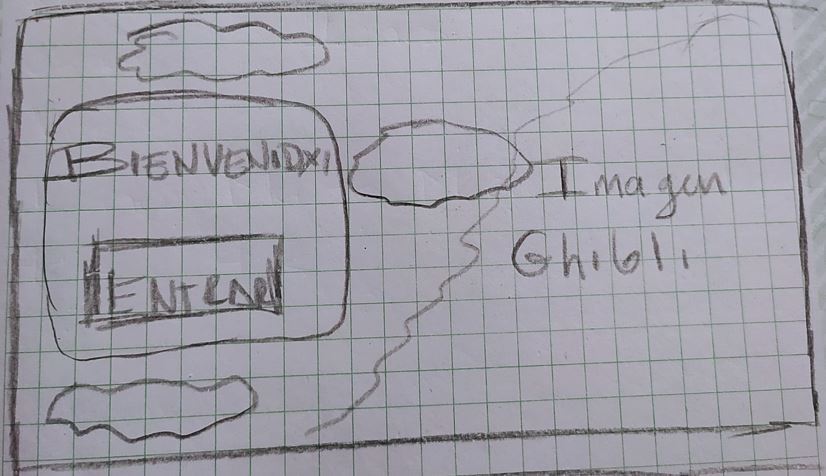 BIENVENIDX!
ENTRAR
Imagen
Ghibli